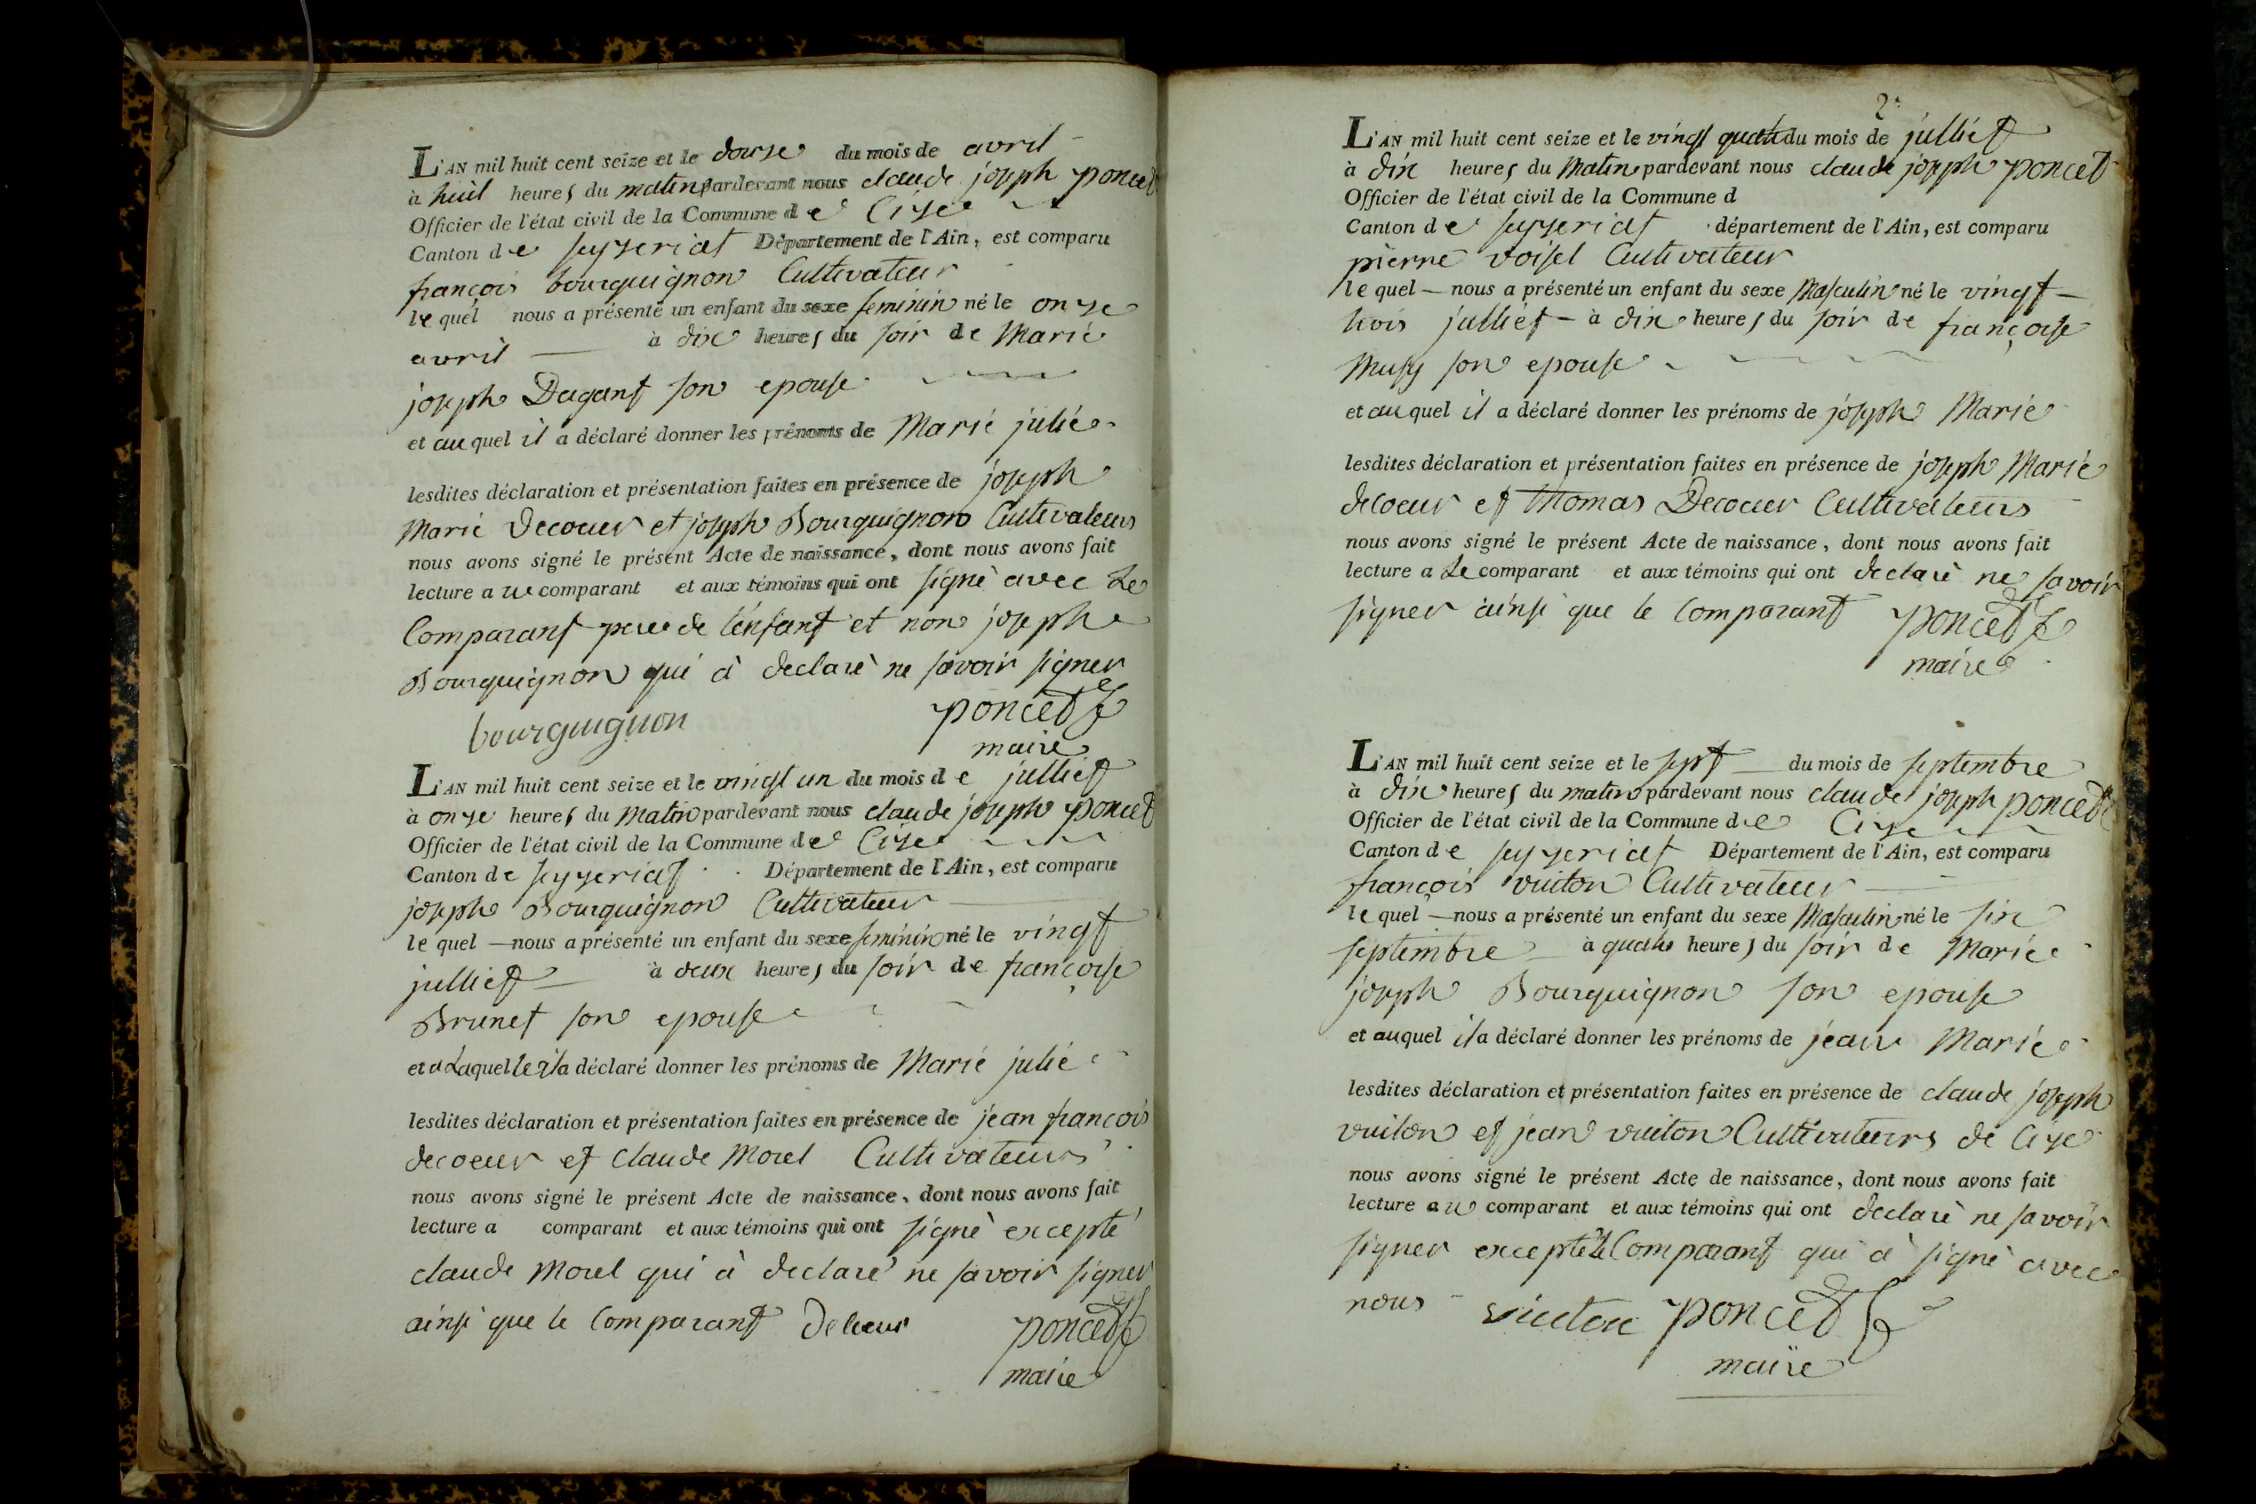 L'AN mil huit cent seize et le douze du mois de avril
à huit heures du matin pardevant nous claude joseph poncet
Officier de l'état civil de la Commune de Cize
Canton de seyzeriat Département de l'Ain, est comparu
françois bourguignon Cultivateur
le quel nous a présenté un enfant du sexe feminin né le onze
avril à dix heures du soir de Marie
joseph Dagant son epouse
et au quel il a déclaré donner les prénoms de Marie julie
lesdites déclaration et présentation faites en présence de joseph
Marie Decoeur et joseph Bourguignon Cultivateurs
nous avons signé le présent Acte de naissance, dont nous avons fait
lecture a u comparant et aux témoins qui ont signè avec Le
Comparant pere de l'enfant et non joseph
Bourguignon qui à declarè ne savoir signer
bourguignon poncet
maire
L'AN mil huit cent seize et le vingt un du mois de julliet
à onze heures du Matin pardevant nous claude joseph poncet
Officier de l'état civil de la Commune de Cize
Canton de seyzeriat Département de l'Ain, est comparu
joseph Bourguignon Cultivateur
le quel nous a présenté un enfant du sexe feminin né le vingt
julliet à deux heures du soir de françoise
Brunet son epouse
et a Laquelle il a déclaré donner les prénoms de Marie julie
lesdites déclaration et présentation faites en présence de jean françois
decoeur et claude Morel Cultivateurs
nous avons signé le présent Acte de naissance, dont nous avons fait
lecture a comparant et aux témoins qui ont signè excepté
claude Morel qui à declaré ne savoir signer
ainsi que le Comparant Decoeur poncet
maire
2e
L'AN mil huit cent seize et le vingt quatre du mois de julliet
à dix heures du Matin pardevant nous claude joseph poncet
Officier de l'état civil de la Commune d
Canton de seyzeriat département de l'Ain, est comparu
pierre voisel Cultivateur
le quel nous a présenté un enfant du sexe Masculin né le vingt
trois julliet à dix heures du soir de françoise
Musy son epouse
et au quel il a déclaré donner les prénoms de joseph Marie
lesdites déclaration et présentation faites en présence de joseph Marie
decoeur et thomas Decoeur Cultivateurs
nous avons signé le présent Acte de naissance, dont nous avons fait
lecture a Le comparant et aux témoins qui ont declarè ne savoir
signer ainsi que le Comparant poncet
maire
L'AN mil huit cent seize et le sept du mois de septembre
à dix heures du matin pardevant nous claude joseph poncet
Officier de l'état civil de la Commune de Cize
Canton de seyzeriat Département de l'Ain, est comparu
françois vuiton Cultivateur
le quel nous a présenté un enfant du sexe Masculin né le six
septembre à quatre heures du soir de Marie
joseph Bourguignon son epouse
et auquel il a déclaré donner les prénoms de jean Marie
lesdites déclaration et présentation faites en présence de claude joseph
vuiton et jean vuiton Cultivateurs de Cize
nous avons signé le présent Acte de naissance, dont nous avons fait
lecture au comparant et aux témoins qui ont declarè ne savoir
signer excepté le Comparant qui à signè avec
nous vuiton poncet
maire